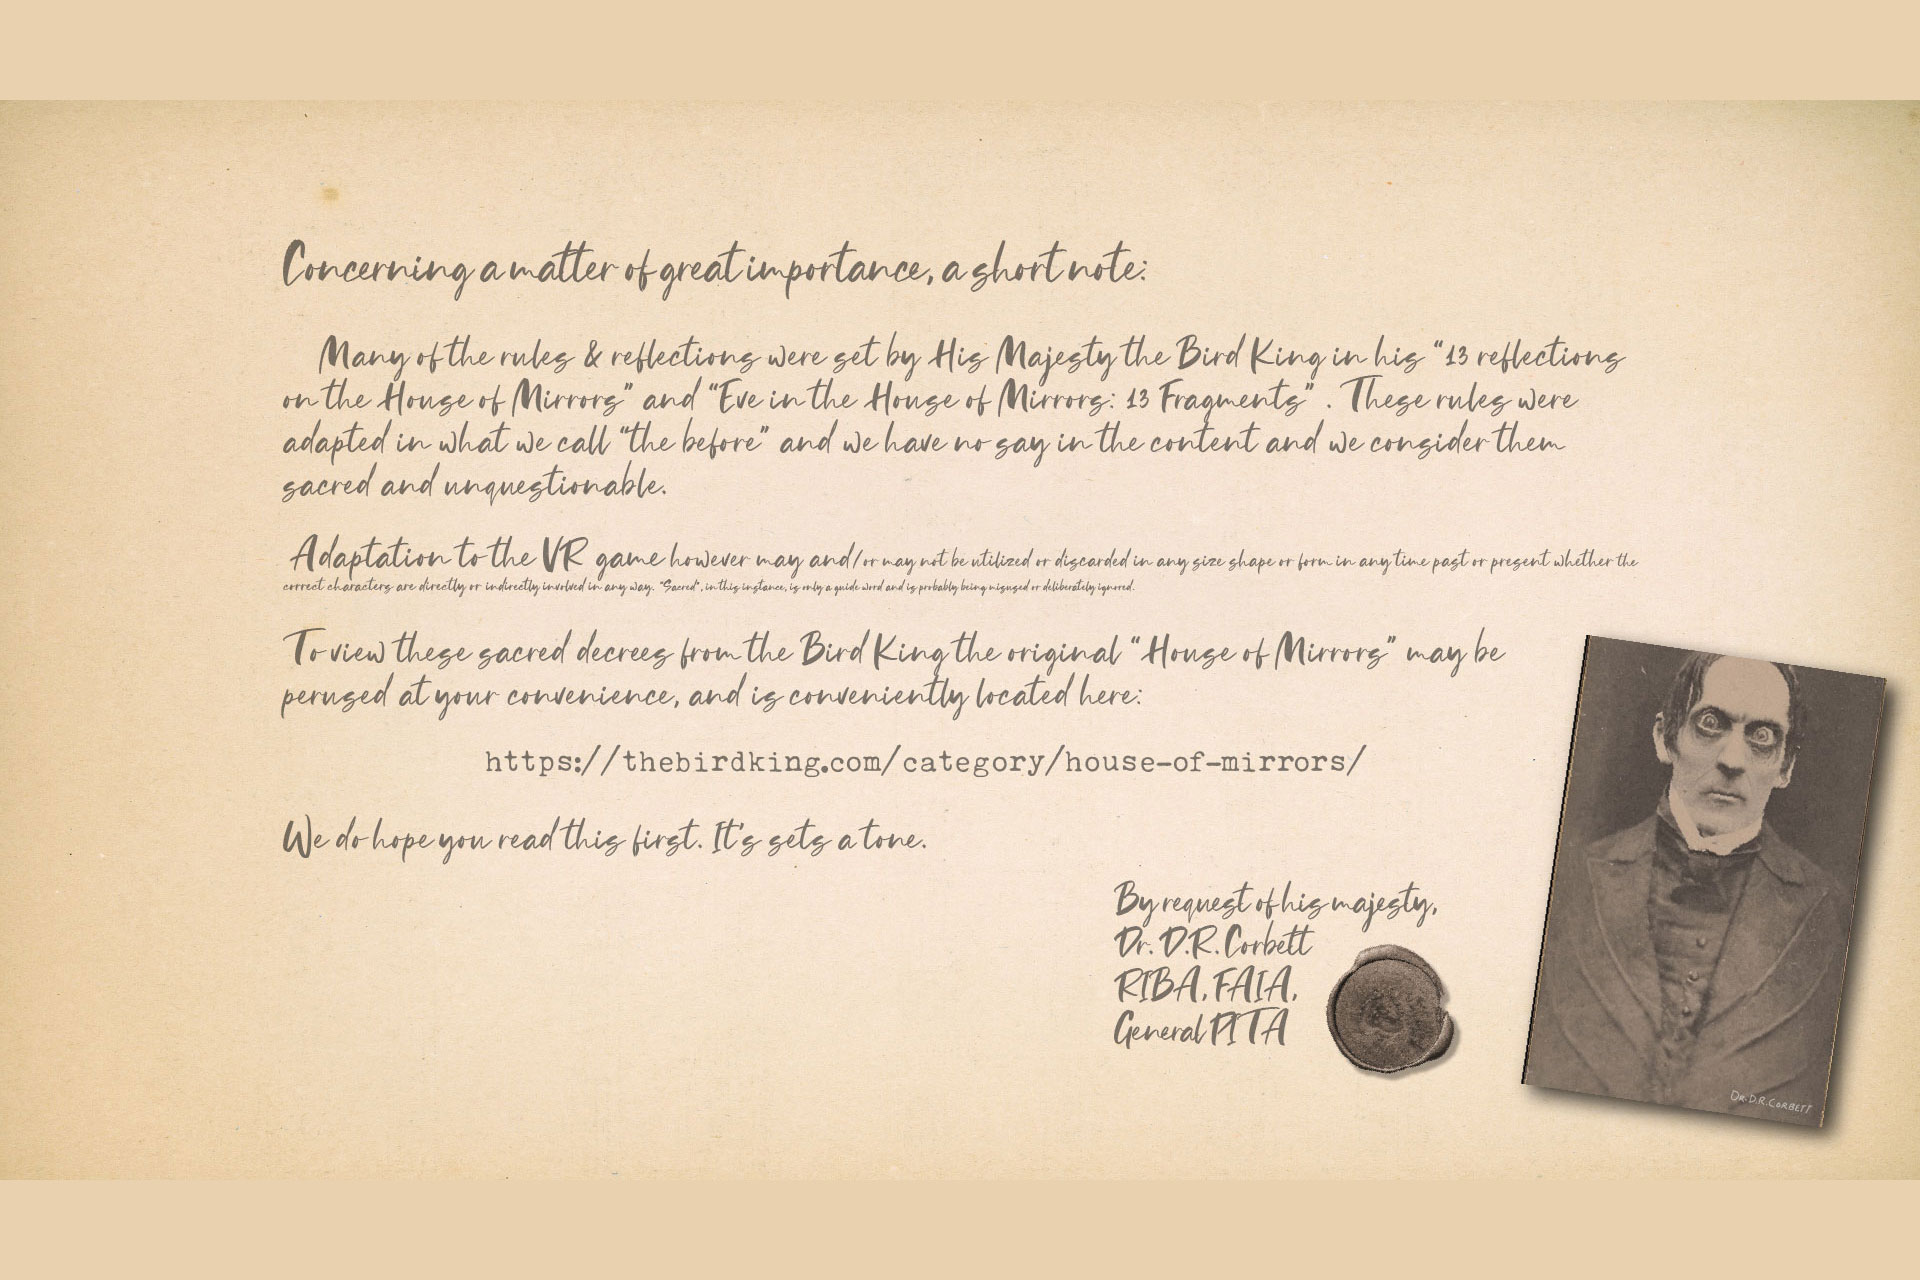 Concerning a matter of great importance, a short note:
Many of the rules & reflections were set by His Majesty the Bird King in his "13 reflections
on the House of Mirrors" and "Eve in the House of Mirrors: 13 Fragments" . These rules were
adapted in what we call "the before" and we have no say in the content and we consider them
sacred and unquestionable.
Adaptation to the VR game however may and/or may not be utilized or discarded in any size shape or form in any time past or present whether the
correct characters are directly or indirectly involved in any way. "Sacred", in this instance, is only a guide word and is probably being misused or deliberately ignored.
To view these sacred decrees from the Bird King the original "House of Mirrors" may be
perused at your convenience, and is conveniently located here:
https://thebirdking.com/category/house-of-mirrors/
We do hope you read this first. It's sets a tone.
By request of his majesty,
Dr. D.R. Corbett
RIBA, FAIA,
General PITA
DR. D.R. CORBETT